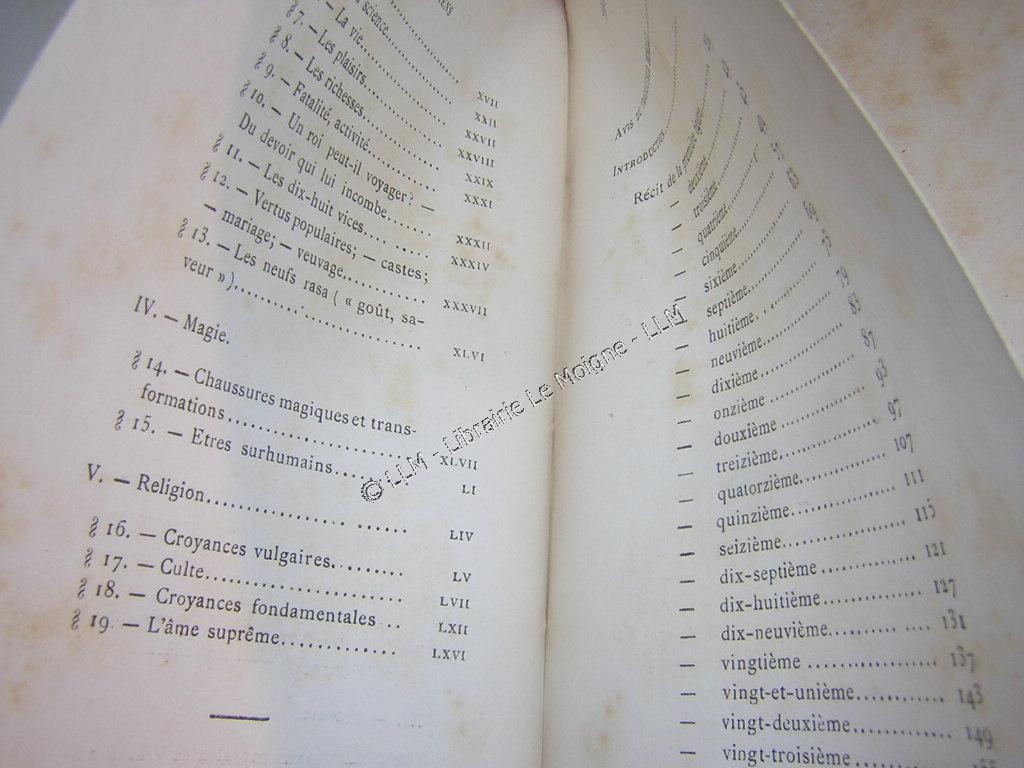 science
§ 7. — La vie XVII
§ 8. — Les plaisirs XXII
§ 9. — Les richesses XXVII
§ 10. — Fatalité, activité XXVIII
— Un roi peut-il voyager? — XXIX
Du devoir qui lui incombe XXXI
§ 11. — Les dix-huit vices XXXII
§ 12. — Vertus populaires; — castes; XXXIV
— mariage; — veuvage XXXVII
§ 13. — Les neufs rasa (« goût, sa-
veur ») XLVI
IV. — Magie.
§ 14. — Chaussures magiques et trans-
formations XLVII
§ 15. — Etres surhumains LI
V. — Religion LIV
§ 16. — Croyances vulgaires LV
§ 17. — Culte LVII
§ 18. — Croyances fondamentales LXII
§ 19. — L'âme suprême LXVI
Avis
Introduction
Récit de la première
— deuxième
— troisième
— quatrième
— cinquième
— sixième 63
— septième 69
— huitième 73
— neuvième 79
— dixième 83
— onzième 87
— douzième 93
— treizième 97
— quatorzième 107
— quinzième 111
— seizième 115
— dix-septième 121
— dix-huitième 127
— dix-neuvième 131
— vingtième 137
— vingt-et-unième 143
— vingt-deuxième 149
— vingt-troisième
© LLM - Librairie Le Moigne - LLM